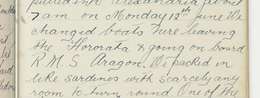 pulled into Alexandria about
7 am on Monday 12th June. We
changed boats here leaving
the Hororata & going on board
R.M.S. Aragon. We packed in
like sardines with scarcely any
room to turn round. One of the